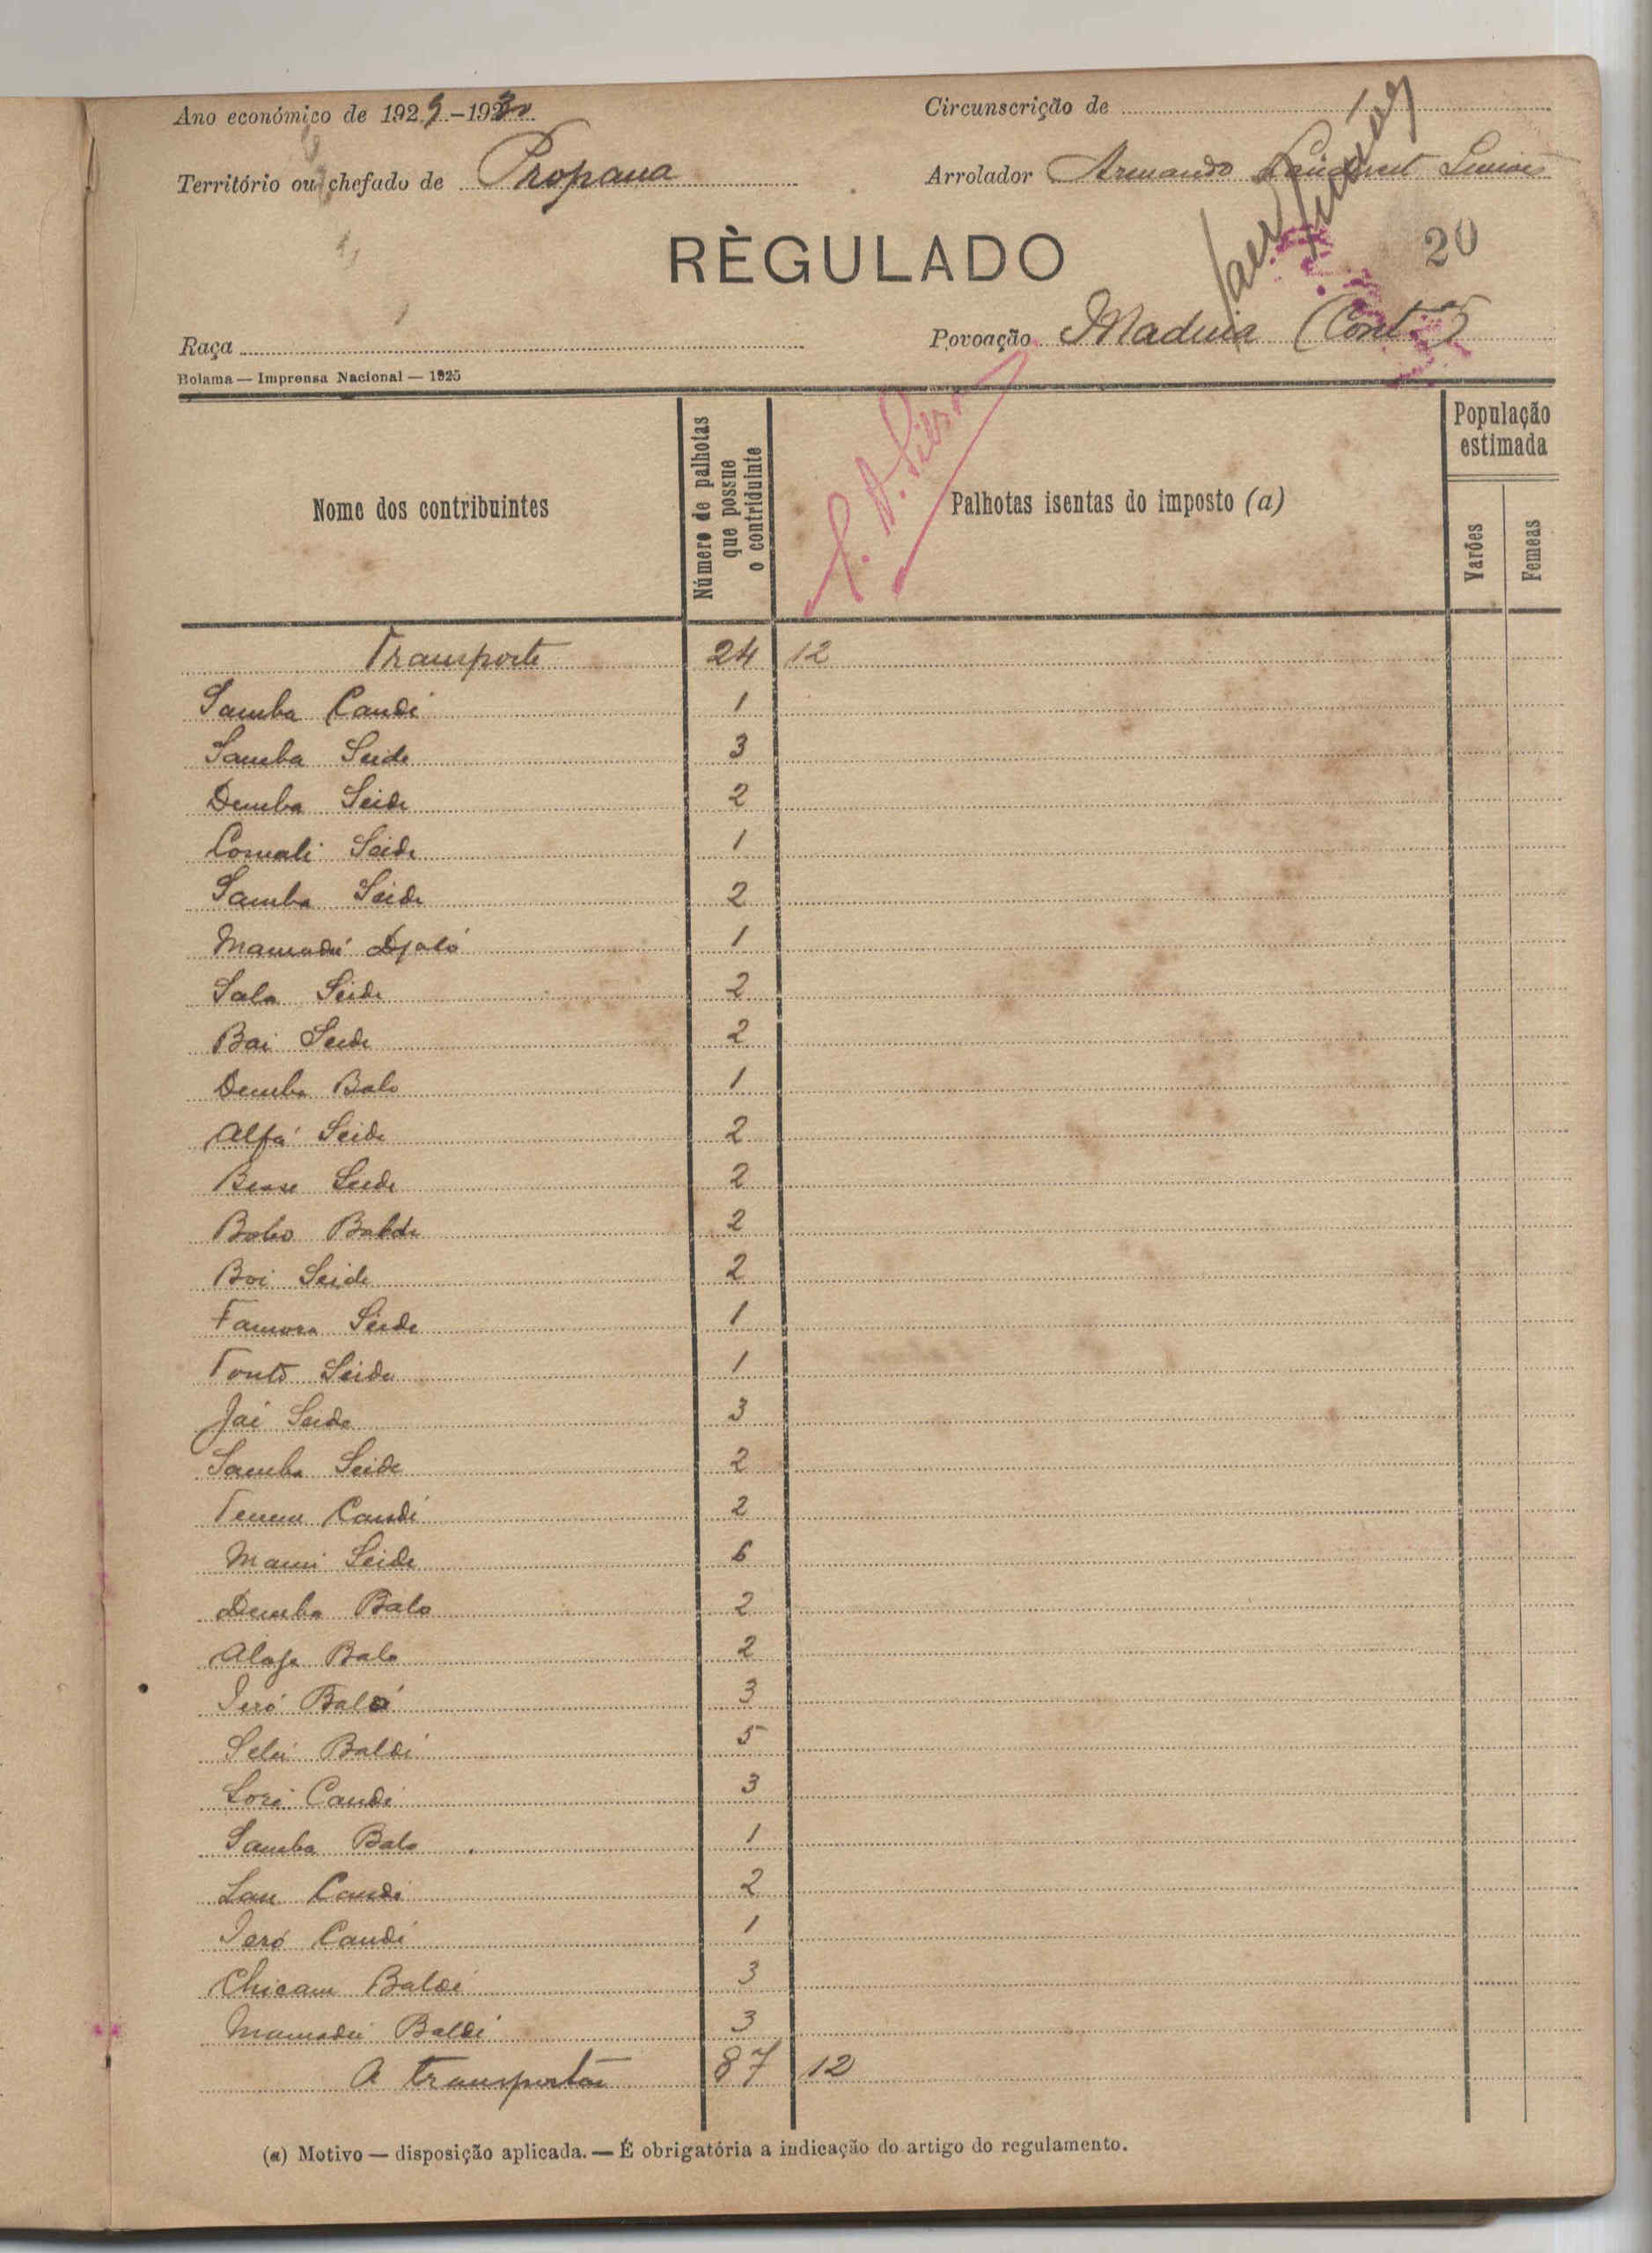 Ano económico de 1929-1930
Circunscrição de
Território ou chefado de Propana
Arrolador Armando
RÈGULADO
20
Raça
Povoação Maduia (Cont.)
Bolama — Imprensa Nacional — 1925
Nome dos contribuintes
Número de palhotas que possue o contriduinte
Palhotas isentas do imposto (a)
População estimada
Varões
Femeas
Transporte 24 12
Samba Candé 1
Samba Seide 3
Demba Seide 2
Comali Seide 1
Samba Seide 2
Mamadú Djaló 1
Sala Seide 2
Bai Seide 2
Demba Balo 1
Alfá Seide 2
Seide 2
Bobo Baldé 2
Boi Seide 2
Famora Seide 1
Seide 1
Jai Seide 3
Samba Seide 2
Candé 2
Seide 6
Demba Balo 2
Balo 2
Jeró 3
Baldé 5
Candé 3
Samba Balo 1
Candé 2
Jeró Candé 1
Chicam Baldé 3
Mamadú Baldé 3
A transportar 87 12
(a) Motivo — disposição aplicada. — É obrigatória a indicação do artigo do regulamento.